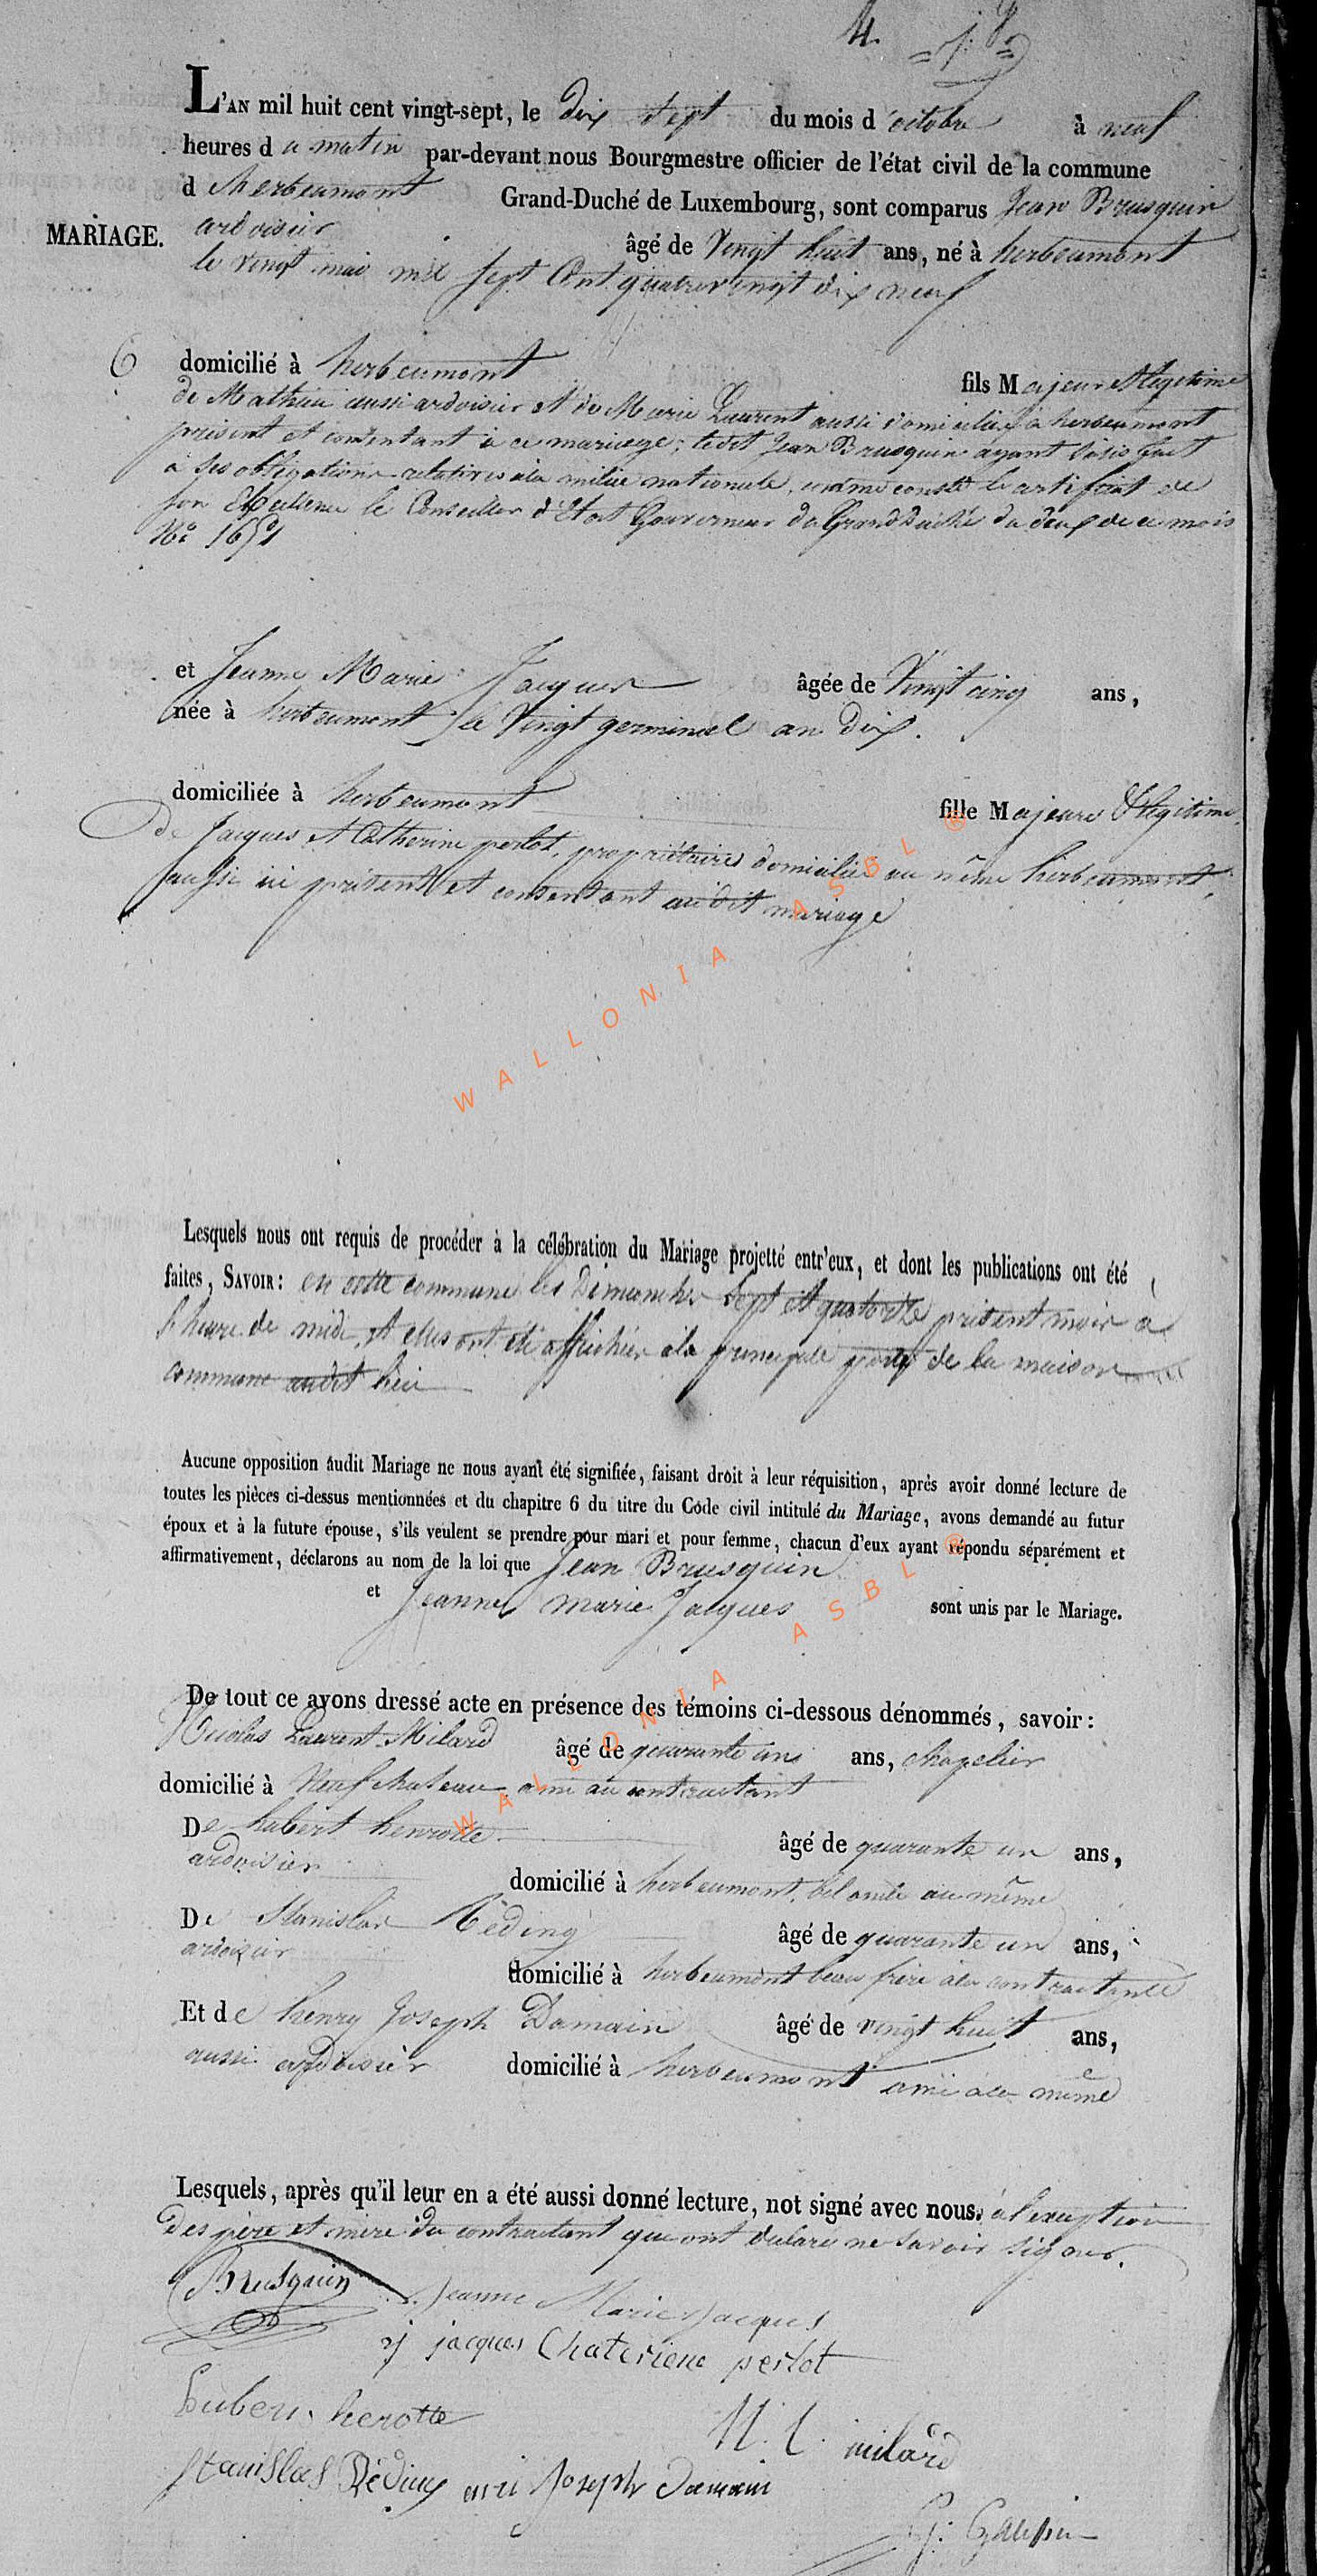 4.
L'AN mil huit cent vingt-sept, le dix sept du mois d'octobre à neuf
heures du matin par-devant nous Bourgmestre officier de l'état civil de la commune
d'herbeumont Grand-Duché de Luxembourg, sont comparus Jean Brusquin
MARIAGE.
ardoisier âgé de Vingt huit ans, né à herbeumont
le vingt mai mil sept Cent quatrevingt dix neuf
6 domicilié à herbeumont fils Majeur & légitime
de Mathieu aussi ardoisier et de Marie Laurent aussi domiciliés à herbeumont
présent et consentant à ce mariage; ledit Jean Brusquin ayant satisfait
à ses obligations relatives à la milice nationale, comme conste le certificat de
son Excellence le Conseiller d'Etat Gouverneur du Grand Duché du deux de ce mois
N° 1651
et Jeanne Marie Jacques âgée de Vingt cinq ans,
née à herbeumont le Vingt germinal an dix.
domiciliée à herbeumont fille Majeure & légitime
de Jacques et Catherine perlot, propriétaires domiciliés au même herbeumont,
aussi ici présent et consentant audit mariage
Lesquels nous ont requis de procéder à la célébration du Mariage projetté entr'eux, et dont les publications ont été
faites, SAVOIR: en cette commune les Dimanches sept et quatorze présent mois à
l'heure de midi, et elles ont été affichées à la principale porte de la maison
commune audit lieu
Aucune opposition audit Mariage ne nous ayant été signifiée, faisant droit à leur réquisition, après avoir donné lecture de
toutes les pièces ci-dessus mentionnées et du chapitre 6 du titre du Code civil intitulé du Mariage, avons demandé au futur
époux et à la future épouse, s'ils veulent se prendre pour mari et pour femme, chacun d'eux ayant répondu séparément et
affirmativement, déclarons au nom de la loi que Jean Brusquin
et Jeanne marie Jacques sont unis par le Mariage.
De tout ce avons dressé acte en présence des témoins ci-dessous dénommés, savoir:
Nicolas Laurent Milard âgé de quarante ans ans, chapelier
domicilié à Neufchateau ami au contractant
De hubert henrotte âgé de quarante un ans,
ardoisier domicilié à herbeumont, bel oncle au même
De Stanislas Réding âgé de quarante un ans,
ardoisier domicilié à herbeumont beau frère à la contractante
Et de henry Joseph Damain âgé de vingt huit ans,
aussi ardoisier domicilié à herbeumont ami à la même
Lesquels, après qu'il leur en a été aussi donné lecture, not signé avec nous. à l'exception
des père et mère du contractant qui ont déclaré ne savoir signer.
Brusquin Jeanne Marie Jacques
j jacques Chateriene perlot
huber herotte
N. l. milard
Stanislas Réding anri Joseph damain
WALLONIA ASBL ®
WALLONIA ASBL ®